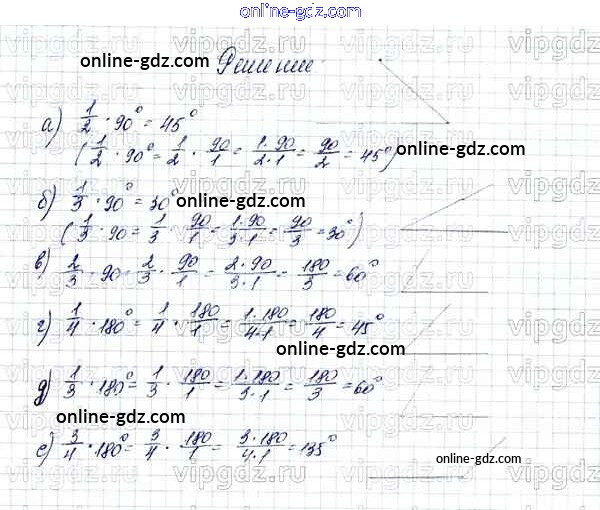 online-gdz.com
vipgdz.ru vipgdz.ru vipgdz.ru
online-gdz.com Решение
а) 1/2 · 90° = 45°
(1/2 · 90° = 1/2 · 90/1 = 1·90/2·1 = 90/2 = 45°) online-gdz.com
б) 1/3 · 90° = 30° online-gdz.com
(1/3 · 90 = 1/3 · 90/1 = 1·90/3·1 = 90/3 = 30°)
в) 2/3 · 90 = 2/3 · 90/1 = 2·90/3·1 = 180/3 = 60°
г) 1/4 · 180° = 1/4 · 180/1 = 1·180/4·1 = 180/4 = 45°
online-gdz.com
д) 1/3 · 180° = 1/3 · 180/1 = 1·180/3·1 = 180/3 = 60°
online-gdz.com
е) 3/4 · 180° = 3/4 · 180/1 = 3·180/4·1 = 135°
online-gdz.com